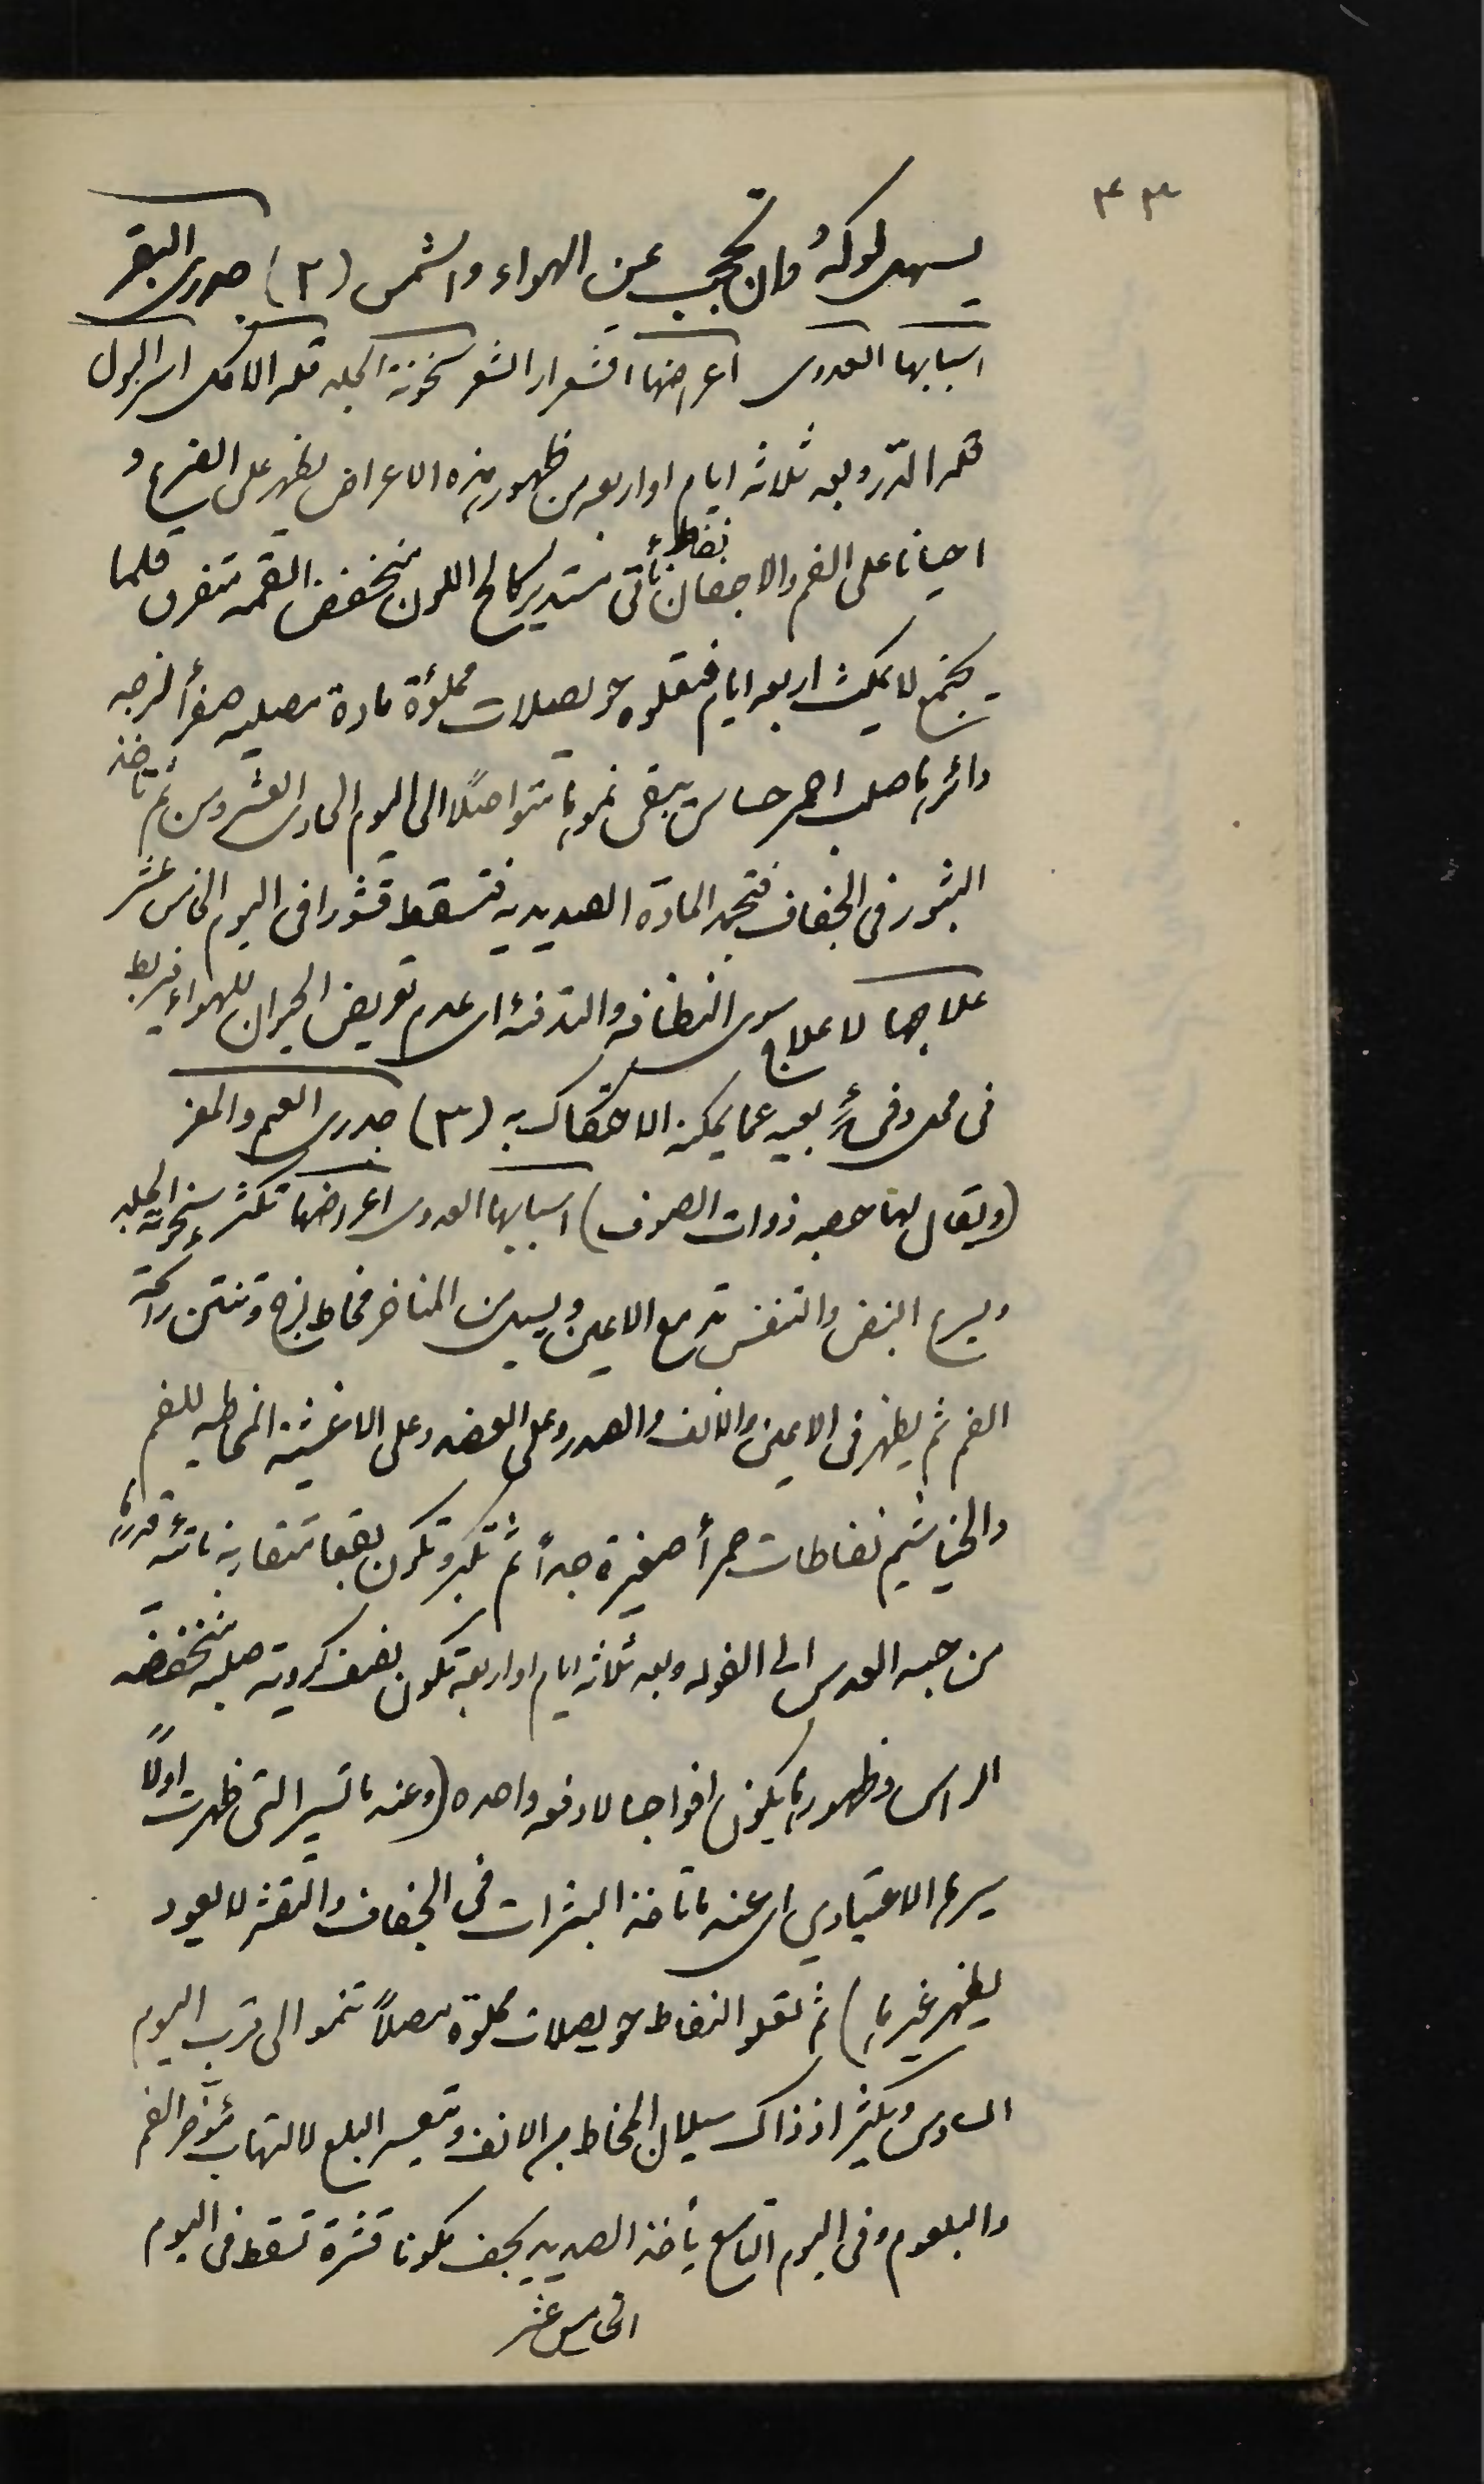 ٤٣
يسهل لوكه وان تحجب عن الهواء والشمس (٢) جدرى البقر
اسبابها العدوى اعراضها اقشعرار الشعر سخونة الجلد قلة الاكل اسر البول
قلة الدّر وبعد ثلاثه ايام او اربعه من ظهور هذه الاعراض يظهر على الضرع و
احيانا على الفم والاجفان نفاط ناتئ مستدير كالح اللون منخفض القمه متفرق قلما
يجتمع لا يمكث اربعه ايام فتعلوه حويصلات مملؤة مادة مصليه صفرأ لزجه
دائرها صلب احمر حساس يبقى نموها متواصلاً الى اليوم الحادى العشر ومن ثم تاخذ
البثور فى الجفاف فتجمد المادة الصديديه فتسقط قشورا فى اليوم الخامس عشر
علاجها لا علاج سوى النظافه والتدفئه اى عدم تعريض الحيوان للهواء فيربط
فى محل دفئ بعيد عما يمكنه الاحتكاك به (٣) جدرى الغنم والمعز
(ويقال لها حصبه ذوات الصوف) اسبابها العدوى اعراضها تكثر سخونة الجلد
ويسرع النبض والتنفس تدمع الاعين ويسيل من المناخر مخاط لزج وتنتن رائحة
الفم ثم يظهر فى الاعين والانف والصدر وعلى العضد وعلى الاغشية المخاطيه للفم
والخياشيم نفاطات حمرأ صغيرة جداً ثم تكبر وتكون بقعا متقاربه ناتئه قدرها
من حبه العدس الى الفوله وبعد ثلاثه ايام او اربعة تكون نصف كرويه صلبه منخفضه
الراس وظهورها يكون افواجا لا دفعه واحده (وعندما تسير التى ظهرت اولاً
سيرها الاعتيادي اى عندما تاخذ البثرات فى الجفاف والتقشر لا يعود
يظهر غيرها) ثم تعلو النفاط حويصلات مملوة مصلاً تنمو الى قرب اليوم
السادس ويكثر اذ ذاك سيلان المخاط من الانف ويتعسر البلع لالتهاب مؤخر الفم
والبلعوم وفى اليوم التاسع يأخذ الصديد يجف مكونا قشرة تسقط فى اليوم
الخامس عشر